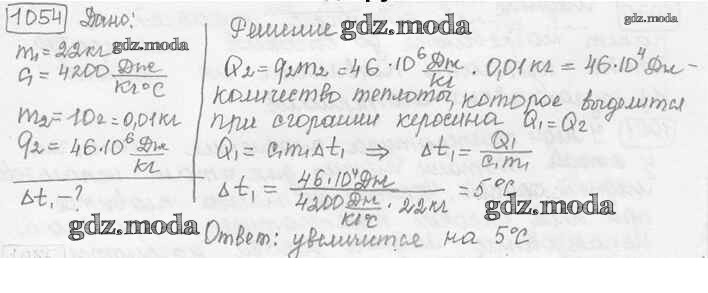 1054 Дано:
Решение gdz.moda
gdz.moda
m₁=22кг gdz.moda
c₁=4200 Дж/кг°С
m₂=10г=0,01кг
q₂=46·10⁶ Дж/кг
Δt₁-?
gdz.moda
Q₂=q₂m₂=46·10⁶ Дж/кг · 0,01кг = 46·10⁴Дж-
количество теплоты, которое выделится
при сгорании керосина Q₁=Q₂
Q₁=c₁m₁Δt₁ ⇒ Δt₁= Q₁/c₁m₁
Δt₁ = 46·10⁴Дж/4200 Дж/кг°С · 22кг =5°С
gdz.moda
Ответ: увеличится на 5°С